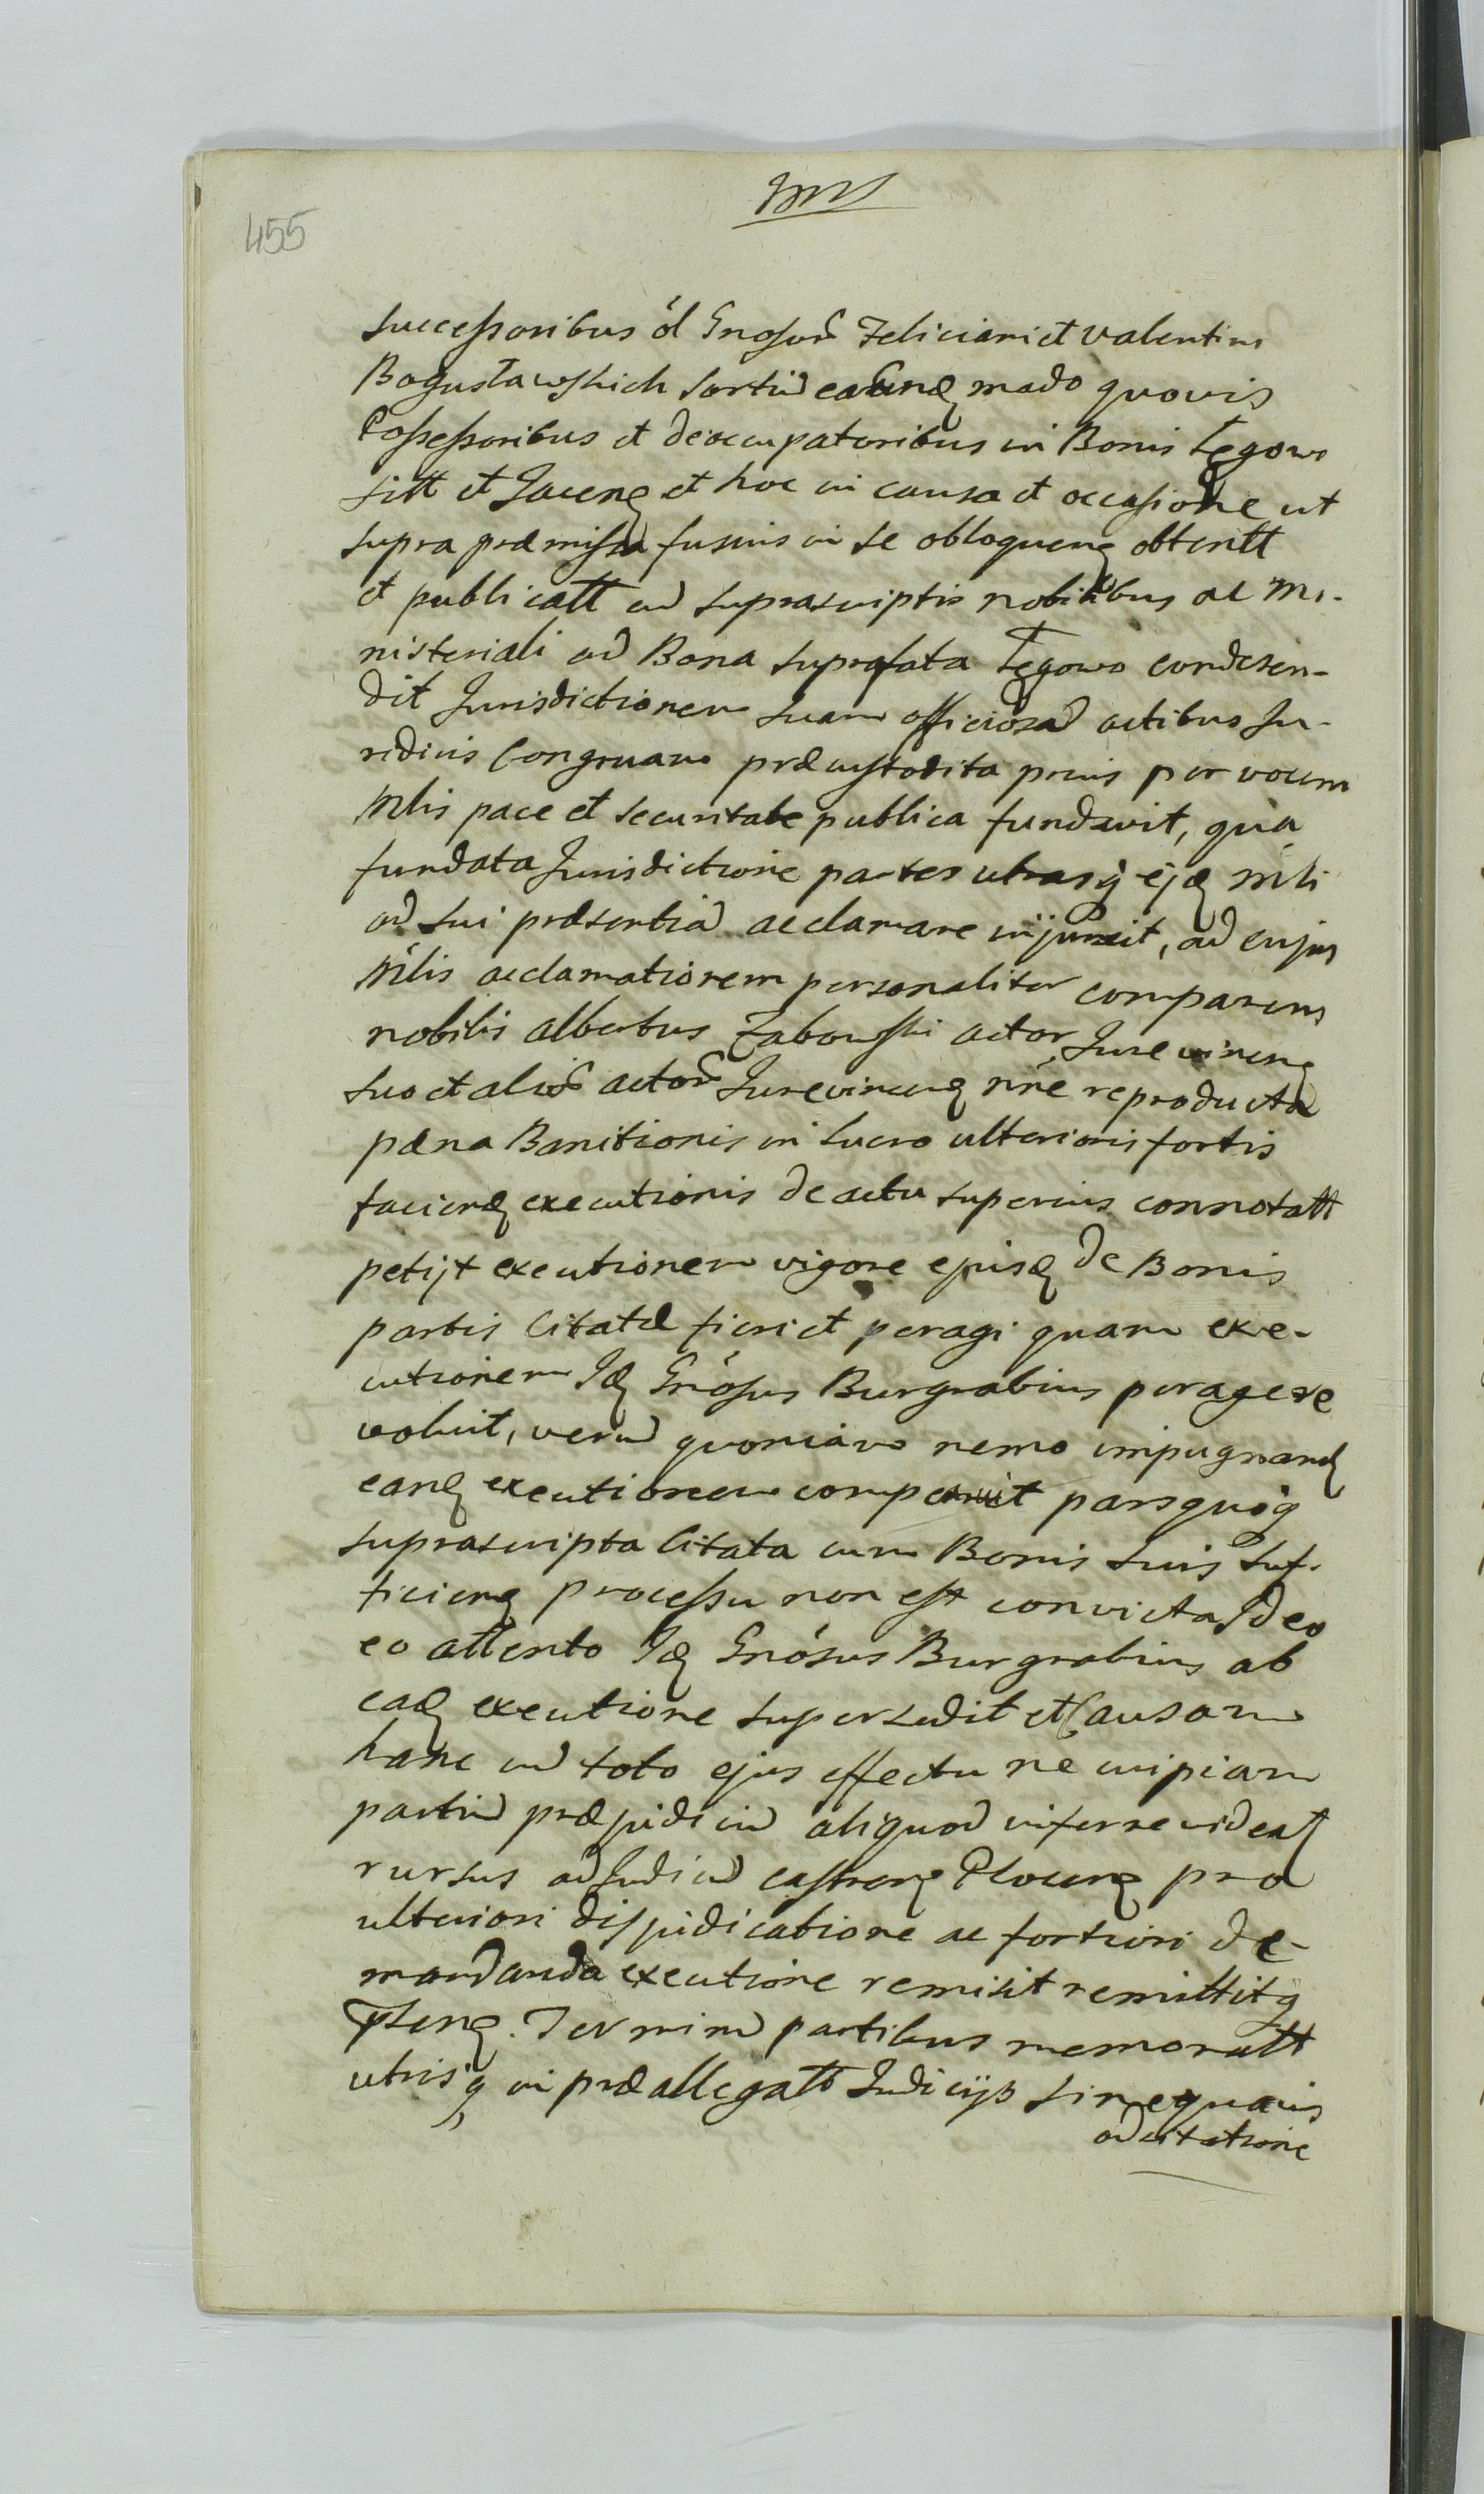 455
successoribus ól Gnosor Feliciani et Valentini
Bogusławskich sortiu earunq modo quovis
Possessoribus et deoccupatoribus in Bonis Łęgowo
sitt et Jacenq et hoc in causa et occasione ut
supra præmissa fusius in se obloquenq obtentt
et publicatt cu suprascriptis nobilibus ac Mi-
nisteriali ad Bona suprafata Łęgowo condescen-
dit Jurisdictionem suam officiosa actibus Ju-
ridicis Congruam præcustodita prius per vocem
Mlis pace et securitate publica fundavit, qua
fundata Jurisdictione partes utrasq ejq Mli
ad sui præsentia acclamare injunxit, ad cujus
Mlis acclamationem personaliter comparens
nobilis Albertus Zabowski actor Jurevincen
suo et alior actor Jurevincenq nñe reproducta
pæna Banitionis in lucro ulterioris fortis
faciendq executionis de actu superius connotatt
petijt executionem vigore ejusq de Bonis
partis Citatæ fieri et peragi quam exe-
cutionem Idq Gnosus Burgrabius peragere
voluit, veru quoniam nemo impugnandq
eandq executionem comparuit parsquoq
suprascripta Citata cum Bonis suis suf-
ficienq processu non est convicta Ideo
eo attento Idq Gnósus Burgrabius ab
eadq executione supersedit et Causam
hanc cu toto ejus effectu ne cuipiam
partiu præjudiciu aliquod inferre videat
rursus ad Judiciu castrenq Plocenq pro
ulteriori disjudicatione ac fortiori de-
mandanda executione remisit remittitq
Pntenq. Terminu partibus memoratt
utrisq in præallegatt Judicijs sine quavis
adcitatione